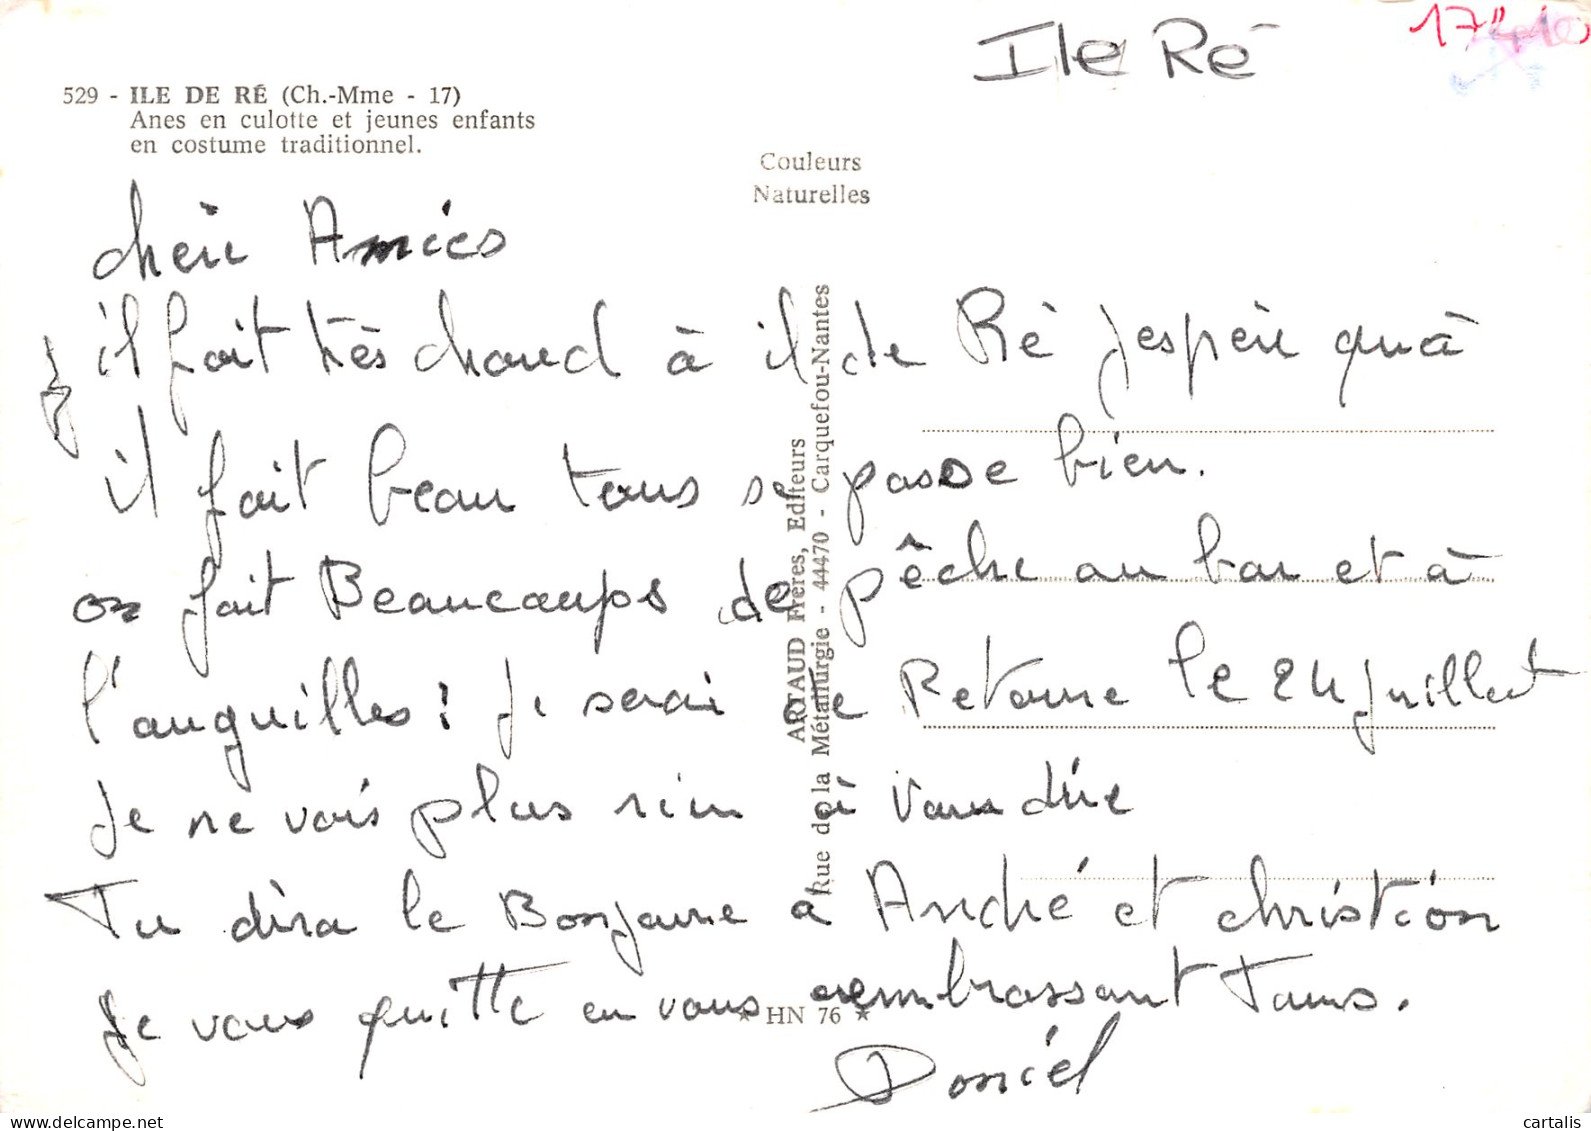 Ile Ré
529 - ILE DE RÉ (Ch.-Mme - 17)
Anes en culotte et jeunes enfants
en costume traditionnel.
Couleurs
Naturelles
chèii Amies
il fait très chaud à il de Ré j'espèii qu'à
il fait beau tous se passe bien.
on fait Beaucoups de pêche au bar et à
l'anguilles! Je serai de Retoure le 24 juillet
Je ne vois plus rien à vous dire
Tu dira le Bonjoure à André et christian
Je vous quitte en vous embrassant Tous.
Daniel
ARTAUD Frères, Editeurs
Rue de la Métallurgie - 44470 - Carquefou-Nantes
★ HN 76 ★
www.delcampe.net
cartalis